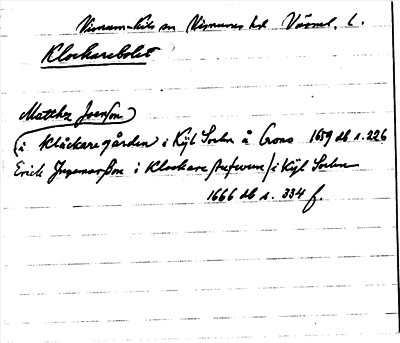 Visnums-Kils sn Visnums hd Värml. l.
Klockarebolet
Matthz Joenßon
i klåckaregården i Kijl Sochn å Crono 1659 db s. 226
Erick Ingemarßon i Klockare i Kijl Sochn
1666 db s. 334 f.